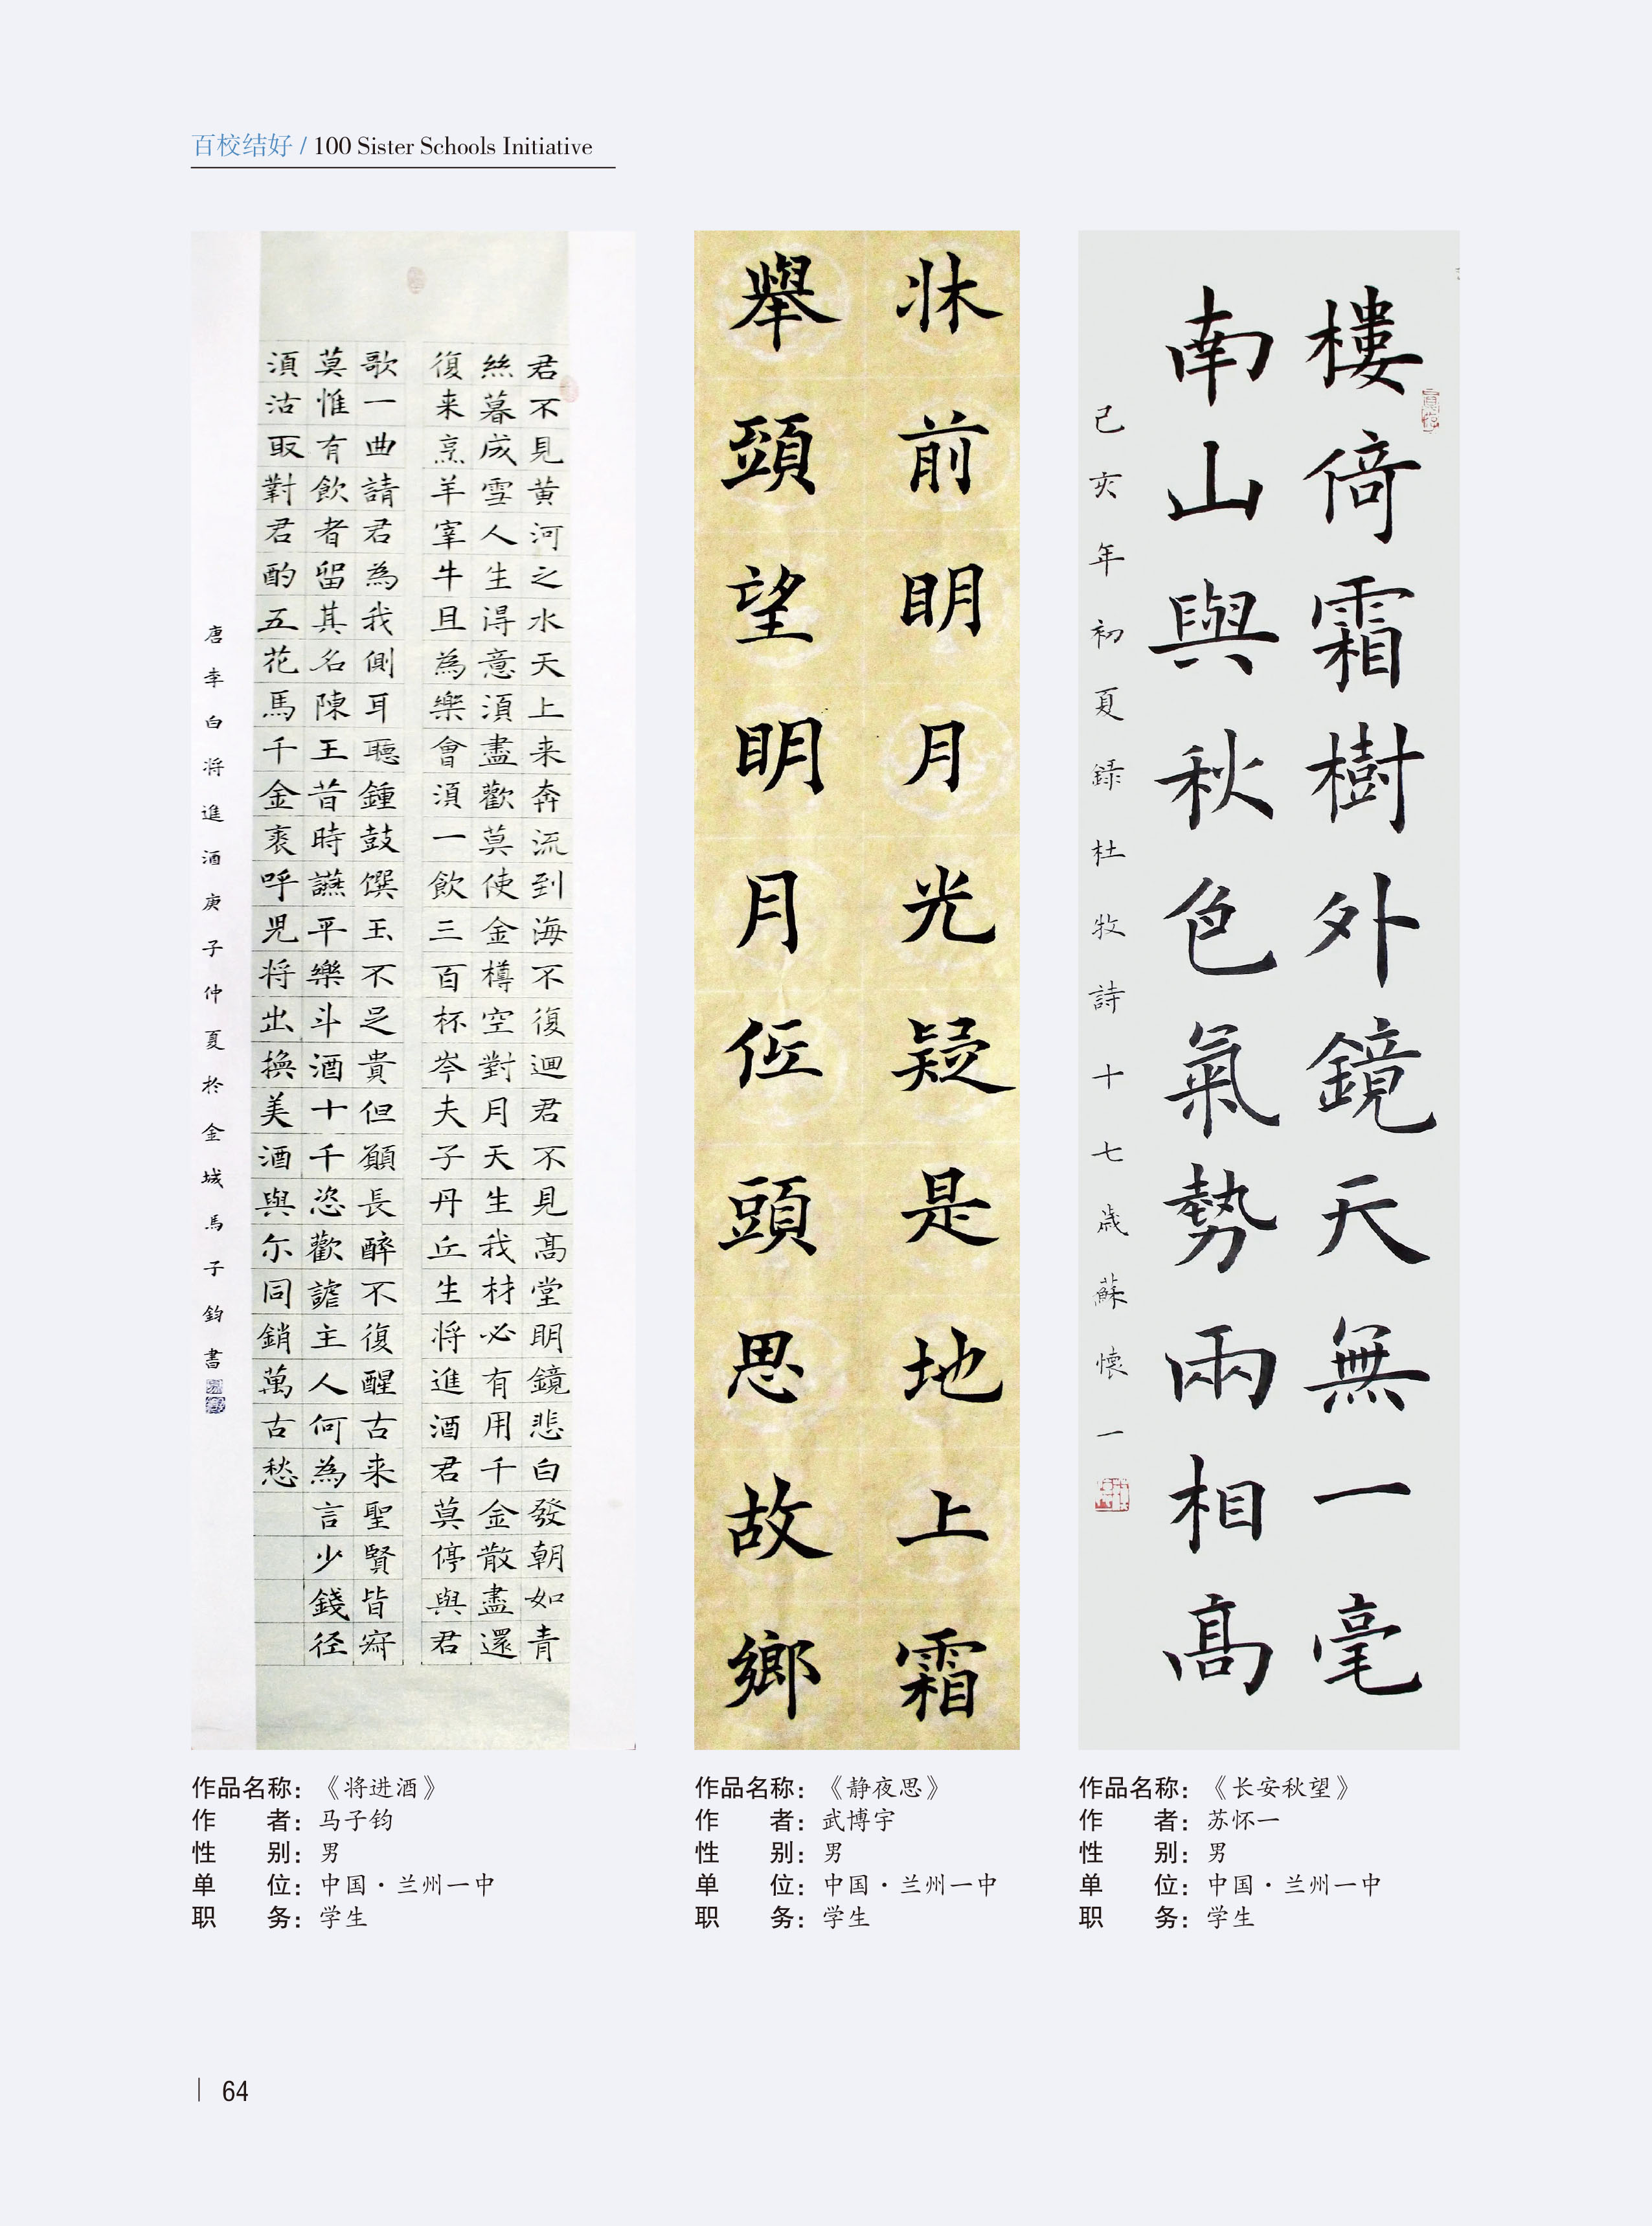 百校结好 / 100 Sister Schools Initiative
君不見黄河之水天上来奔流到海不復迴君不見髙堂明鏡悲白發朝如青
絲暮成雪人生得意須盡歡莫使金樽空對月天生我材必有用千金散盡還
復来烹羊宰牛且為樂會須一飲三百杯岑夫子丹丘生将進酒君莫停與君
歌一曲請君為我側耳聽鍾鼓饌玉不足貴但願長醉不復醒古来聖賢皆寂
莫惟有飲者留其名陳王昔時讌平樂斗酒十千恣歡謔主人何為言少錢径
須沽取對君酌五花馬千金裘呼児将出換美酒與尔同銷萬古愁
唐李白将進酒庚子仲夏於金城馬子鈞書
牀前明月光疑是地上霜
舉頭望明月低頭思故鄉
樓倚霜樹外鏡天無一毫
南山與秋色氣勢兩相髙
己亥年初夏録杜牧詩十七歲蘇懷一
作品名称：《将进酒》
作　　者：马子钧
性　　别：男
单　　位：中国·兰州一中
职　　务：学生
作品名称：《静夜思》
作　　者：武博宇
性　　别：男
单　　位：中国·兰州一中
职　　务：学生
作品名称：《长安秋望》
作　　者：苏怀一
性　　别：男
单　　位：中国·兰州一中
职　　务：学生
64